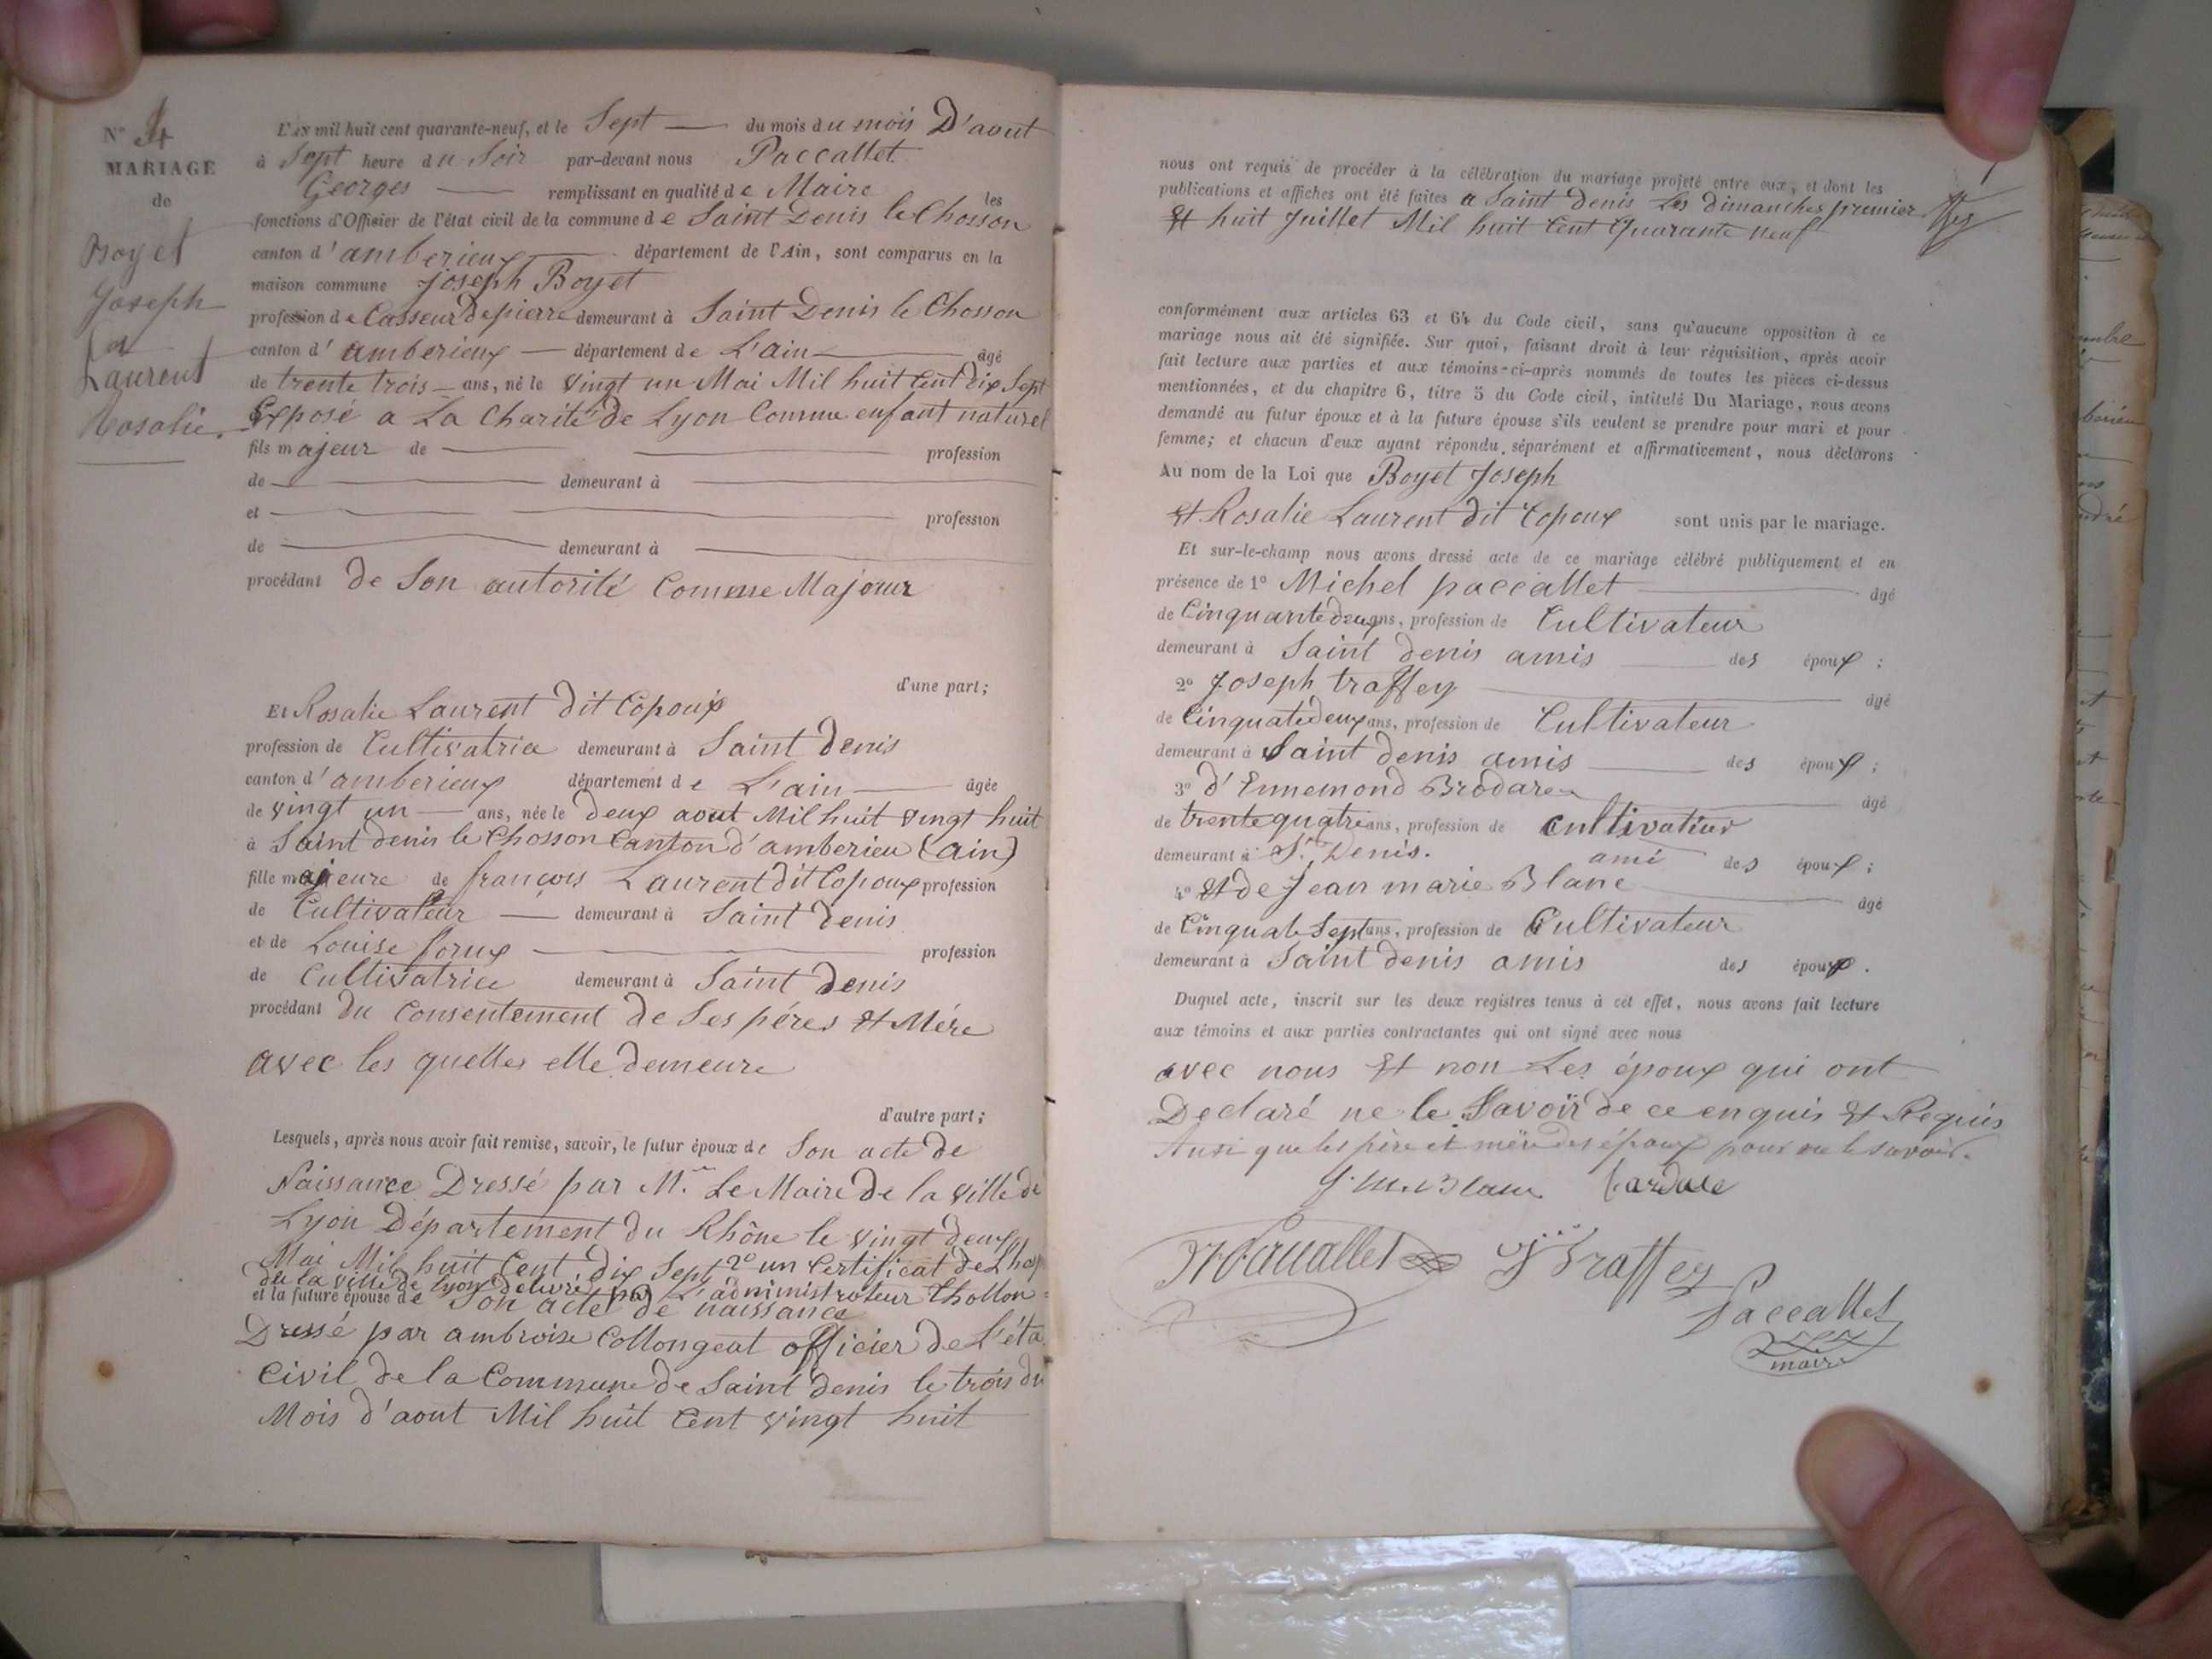 N° 4
MARIAGE
de
Boyet
Joseph
Et
Laurent
Rosalie.
L'AN mil huit cent quarante-neuf, et le Sept du mois du mois D'aout
à Sept heure du Soir par-devant nous Paccallet
Georges remplissant en qualité de Maire les
fonctions d'Officier de l'état civil de la commune de Saint Denis le Chosson
canton d'amberieux département de l'Ain, sont comparus en la
maison commune Joseph Boyet
profession de Casseur de pierre demeurant à Saint Denis le Chosson
canton d'amberieux département de L'ain âgé
de trente trois ans, né le vingt un Mai Mil huit Cent dix Sept
Exposé a La Charité de Lyon Comme enfant naturel
fils majeur de profession
de demeurant à
et profession
de demeurant à
procédant de Son autorité Comme Majeur
d'une part;
Et Rosalie Laurent Dit Copoux
profession de Cultivatrice demeurant à Saint Denis
canton d'amberieux département de L'ain âgée
de vingt un ans, née le deux aout Mil huit vingt huit
à Saint denis le Chosson Canton d'amberieu (ain)
fille majeure de françois Laurent dit Copoux profession
de Cultivateur demeurant à Saint Denis
et de Louise profession
de Cultivatrice demeurant à Saint Denis
procédant du Consentement de Ses péres Et Mére
avec les quelles elle demeure
d'autre part;
Lesquels, après nous avoir fait remise, savoir, le futur époux de Son acte de
Naissance Dressé par Mr. Le Maire de la ville de
Lyon Département du Rhône le vingt deux
Mai Mil huit Cent Dix Sept 2° un Certificat de
de la ville de Lyon délivré par L'administrateur Thollon
et la future épouse de Son acte de naissance
Dressé par ambroise Collongeat officier de L'éta
Civil de la Commune de Saint Denis le trois du
Mois d'aout Mil huit Cent vingt huit
nous ont requis de procéder à la célébration du mariage projeté entre eux, et dont les
publications et affiches ont été faites a Saint Denis Les dimanches premier
Et huit Juillet Mil huit Cent Quarante neuf
conformément aux articles 63 et 64 du Code civil, sans qu'aucune opposition à ce
mariage nous ait été signifiée. Sur quoi, faisant droit à leur réquisition, après avoir
fait lecture aux parties et aux témoins-ci-après nommés de toutes les pièces ci-dessus
mentionnées, et du chapitre 6, titre 5 du Code civil, intitulé Du Mariage, nous avons
demandé au futur époux et à la future épouse s'ils veulent se prendre pour mari et pour
femme; et chacun d'eux ayant répondu séparément et affirmativement, nous déclarons
Au nom de la Loi que Boyet Joseph
Et Rosalie Laurent dit Copoux sont unis par le mariage.
Et sur-le-champ nous avons dressé acte de ce mariage célébré publiquement et en
présence de 1° Michel paccallet âgé
de Cinquante deux ans, profession de Cultivateur
demeurant à Saint denis amis des époux;
2° Joseph traffey âgé
de Cinquate deux ans, profession de Cultivateur
demeurant à Saint denis amis des époux;
3° d'Ennemond âgé
de trente quatre ans, profession de cultivateur
demeurant à St. Denis. ami des époux;
4° Et de Jean marie Blanc âgé
de Cinquate Sept ans, profession de Cultivateur
demeurant à Saint denis amis des époux.
Duquel acte, inscrit sur les deux registres tenus à cet effet, nous avons fait lecture
aux témoins et aux parties contractantes qui ont signé avec nous
avec nous Et non Les époux qui ont
Declaré ne le Savoir de ce enquis Et Requis
Ausi que les père et mère des époux pour ne le savoir.
J. M. Blanc
J Traffey
Paccallet
maire